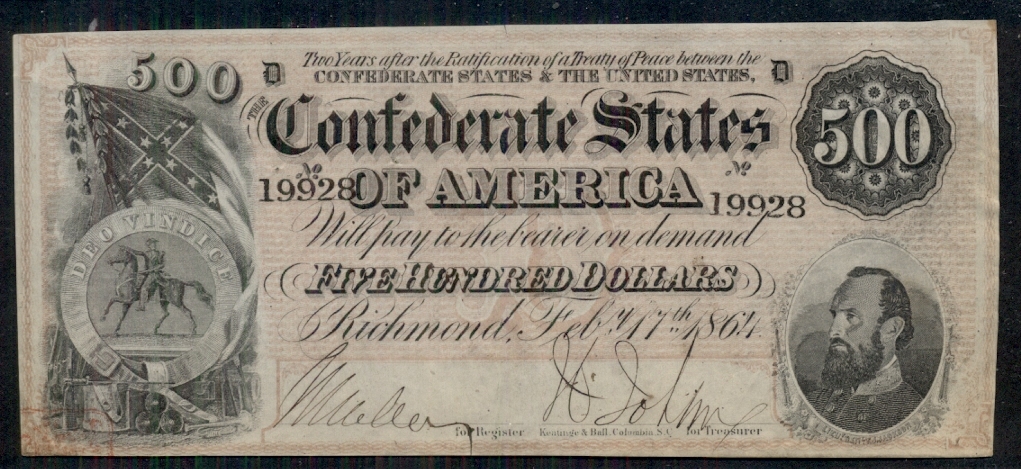 500
D
Two Years after the Ratification of a Treaty of Peace between the
CONFEDERATE STATES & THE UNITED STATES,
D
THE
Confederate States
500
No
No
19928
OF AMERICA
19928
Will pay to the bearer on demand
DEO VINDICE
FIVE HUNDRED DOLLARS
Richmond, Feby. 17th 1864.
for Register
Keatinge & Ball, Columbia S.C.
for Treasurer